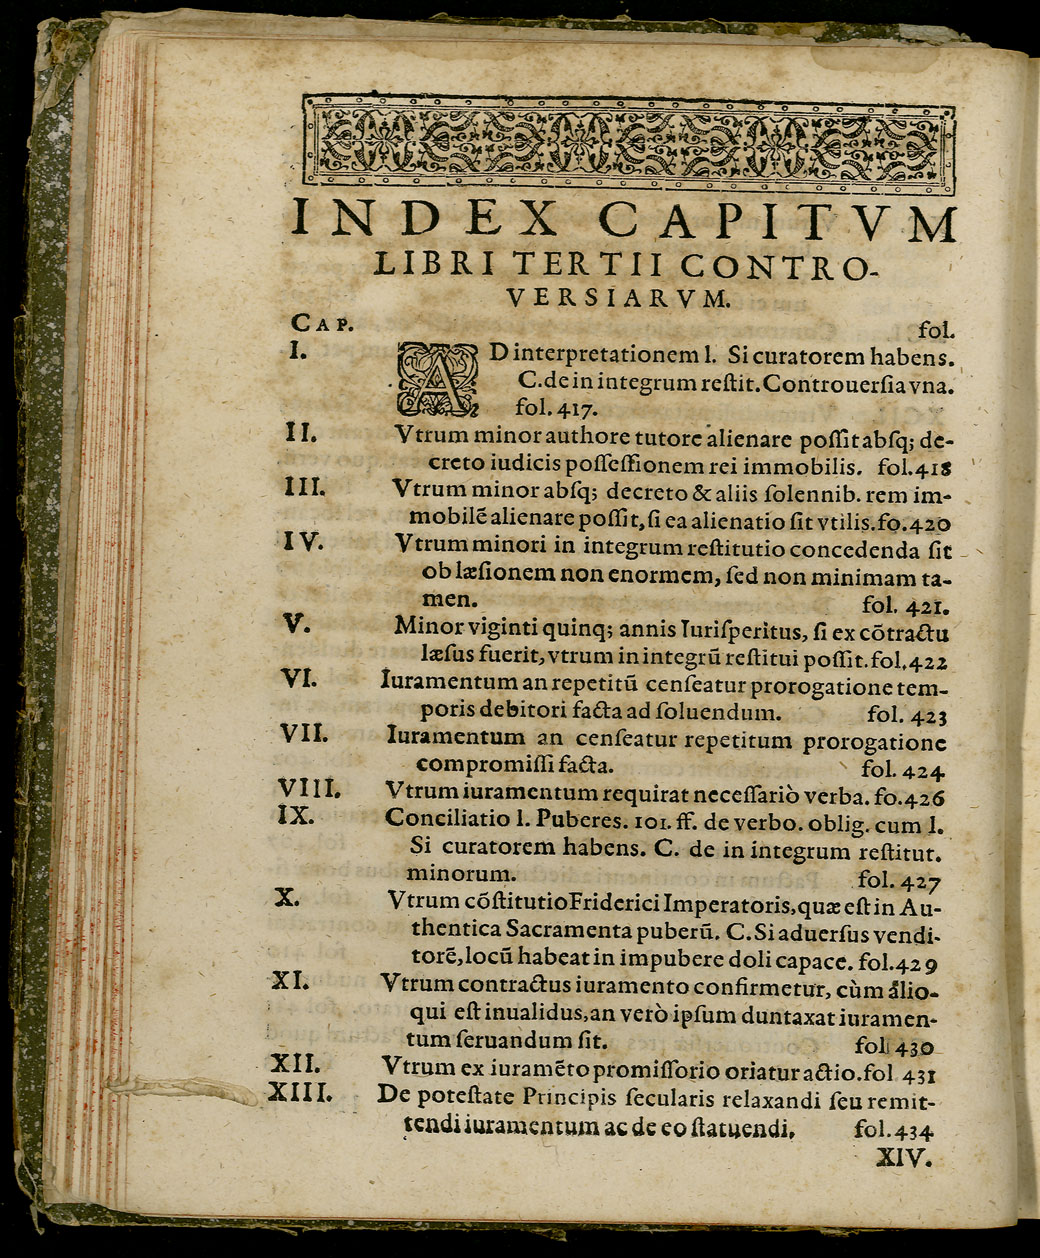 INDEX CAPITVM
LIBRI TERTII CONTRO-
VERSIARVM.
CAP. fol.
I. AD interpretationem l. Si curatorem habens.
C. de in integrum reſtit. Controuerſia vna.
fol. 417.
II. Vtrum minor authore tutore alienare poſſit abſq; de-
creto iudicis poſſeſſionem rei immobilis. fol. 418
III. Vtrum minor abſq; decreto & aliis ſolennib. rem im-
mobilē alienare poſſit, ſi ea alienatio ſit vtilis. fo. 420
IV. Vtrum minori in integrum reſtitutio concedenda ſit
ob læſionem non enormem, ſed non minimam ta-
men. fol. 421.
V. Minor viginti quinq; annis Iuriſperitus, ſi ex cōtractu
læſus fuerit, vtrum in integrū reſtitui poſſit. fol. 422
VI. Iuramentum an repetitū cenſeatur prorogatione tem-
poris debitori facta ad ſoluendum. fol. 423
VII. Iuramentum an cenſeatur repetitum prorogatione
compromiſſi facta. fol. 424
VIII. Vtrum iuramentum requirat neceſſariò verba. fo. 426
IX. Conciliatio l. Puberes. 101. ff. de verbo. oblig. cum l.
Si curatorem habens. C. de in integrum reſtitut.
minorum. fol. 427
X. Vtrum cōſtitutio Friderici Imperatoris, quæ eſt in Au-
thentica Sacramenta puberū. C. Si aduerſus vendi-
torē, locū habeat in impubere doli capace. fol. 429
XI. Vtrum contractus iuramento confirmetur, cùm álio-
qui eſt inualidus, an verò ipſum duntaxat iuramen-
tum ſeruandum ſit. fol 430
XII. Vtrum ex iuramēto promiſſorio oriatur actio. fol 431
XIII. De poteſtate Principis ſecularis relaxandi ſeu remit-
tendi iuramentum ac de eo ſtatuendi, fol. 434
XIV.